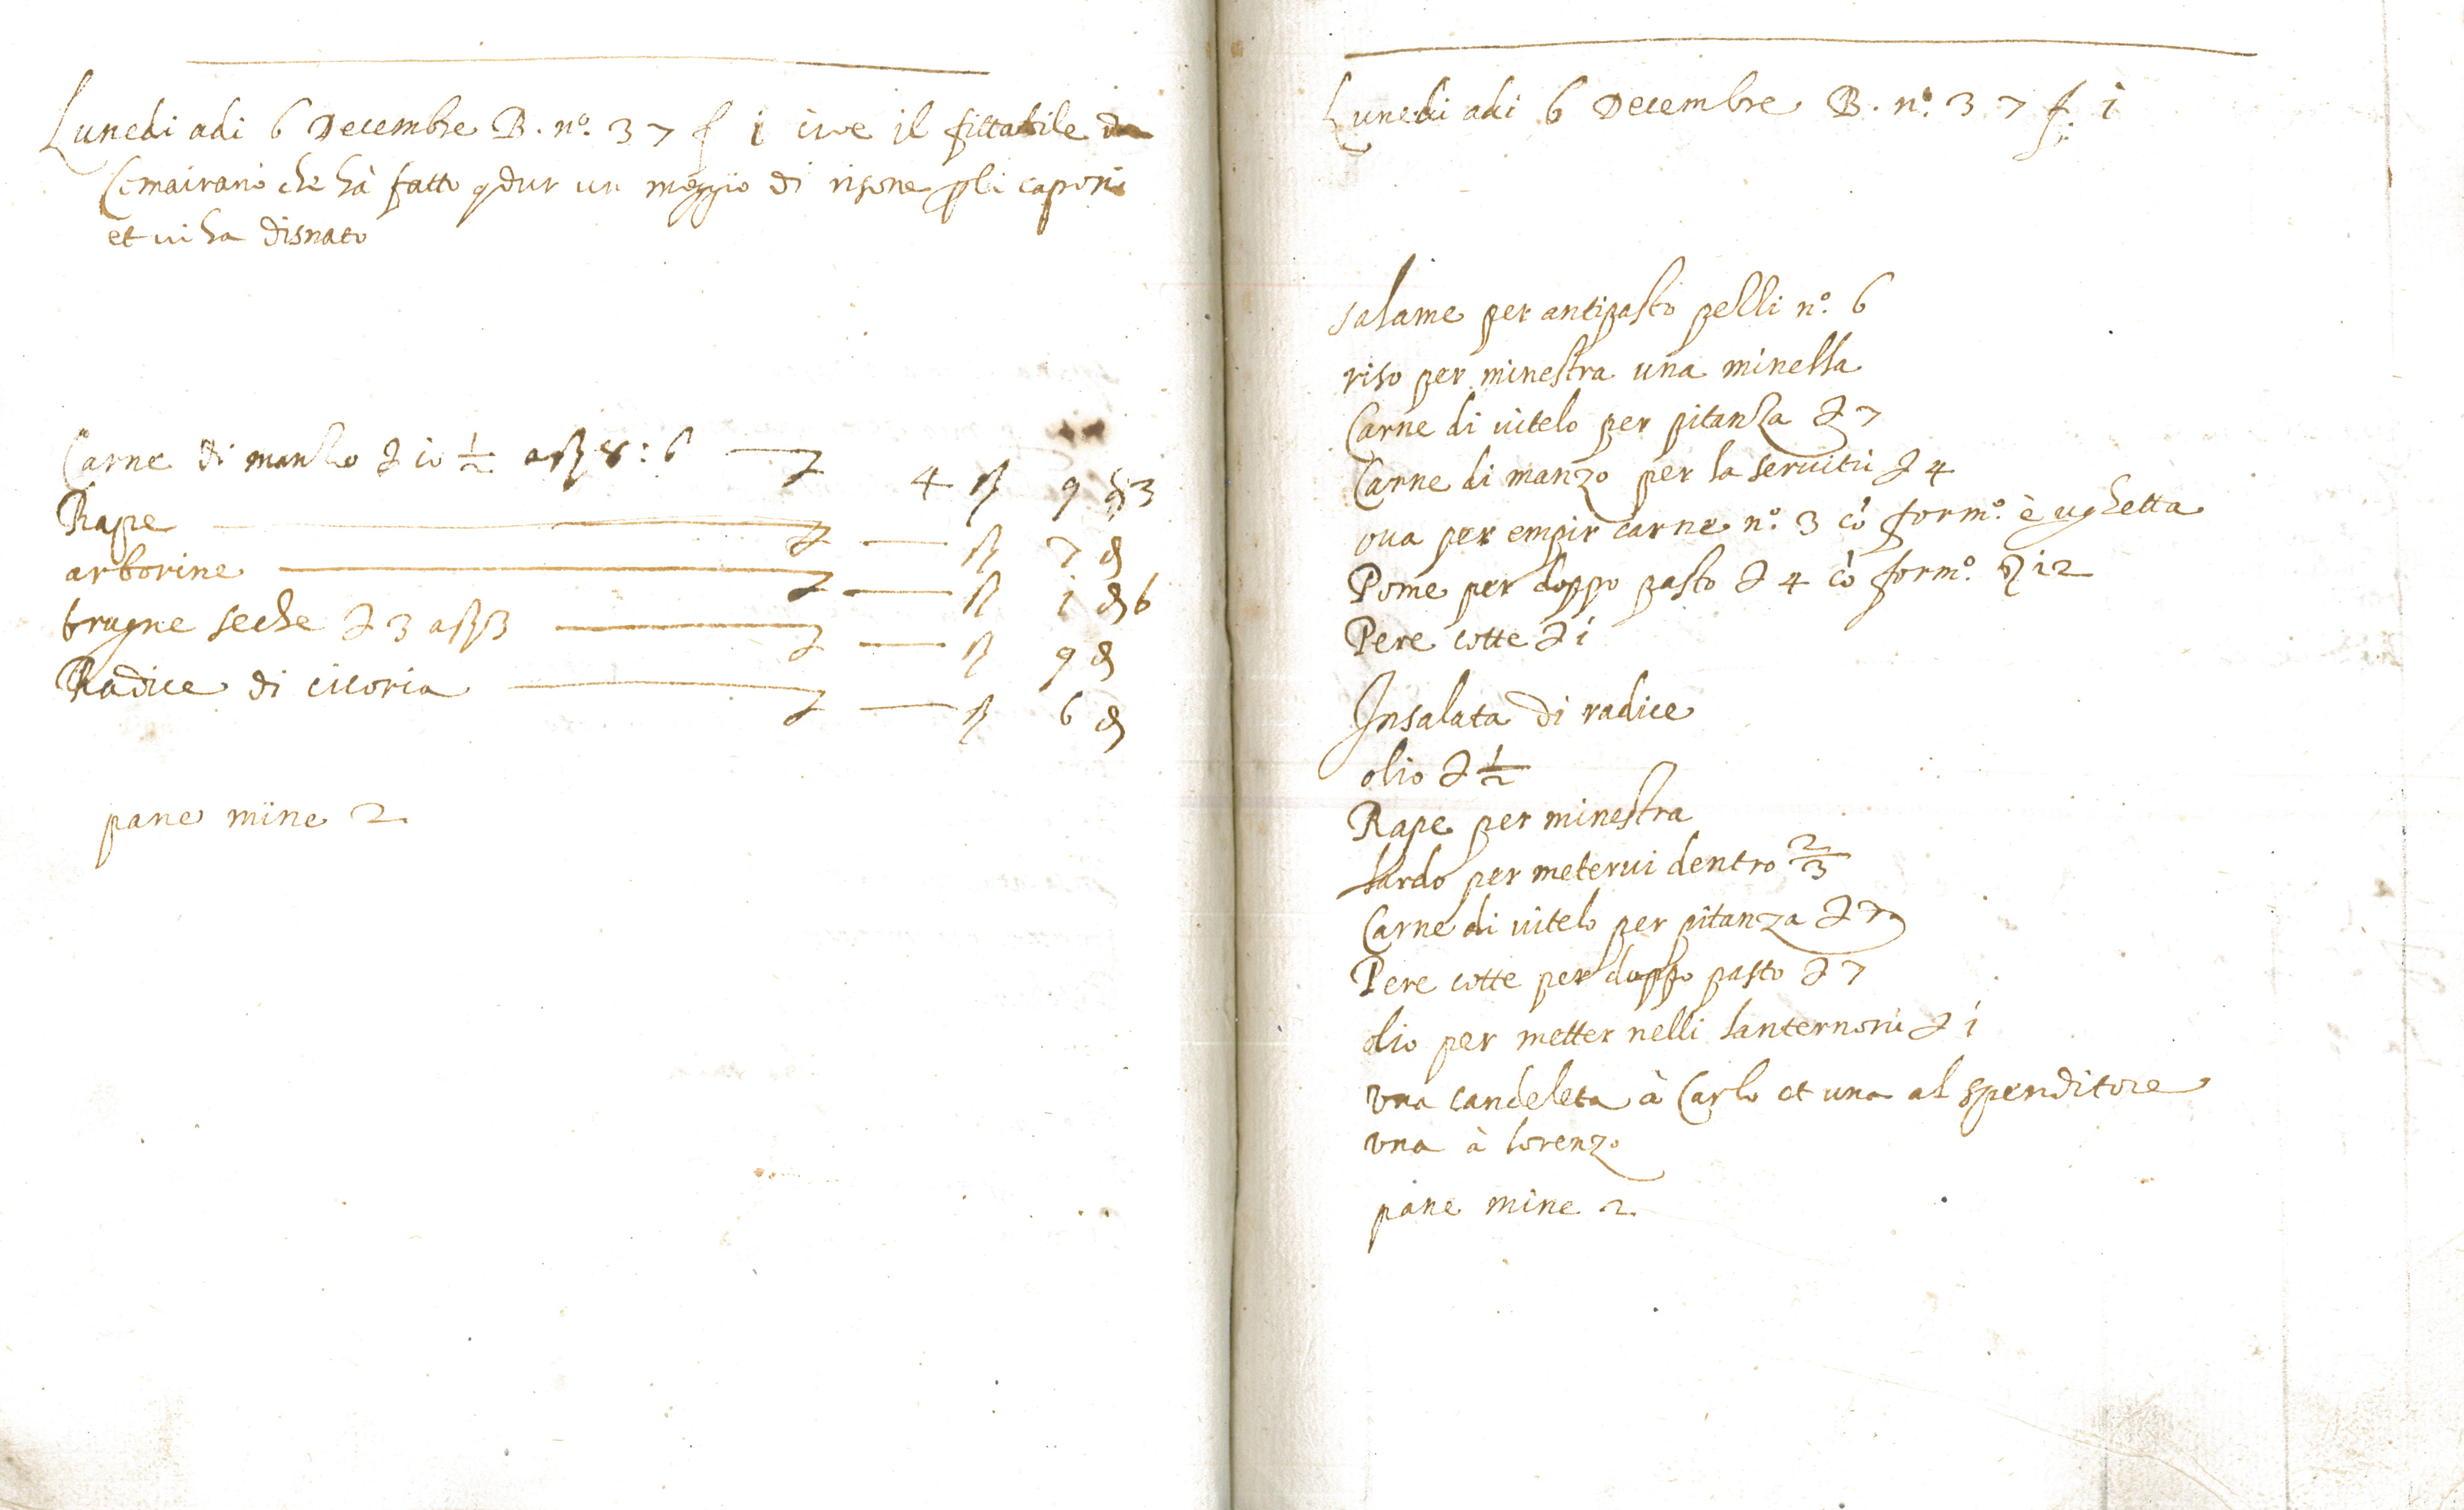 Lunedi adi 6 Decembre B. nº. 37 f i cioe il fittabile da
Cemairano che hà fatto qdur un moggio di risone p li caponi
et vi ha disnato
Carne di manzo ℔ 10 ½ a ß 8:6 — £ 4 ß 9 ₰ 3
Rape — £ — ß 7 ₰
arborine — £ — ß i ₰ 6
brugne seche ℔ 3 a ß 3 — £ — ß 9 ₰
Radice di cicoria — £ — ß 6 ₰
pane mine 2.
Lunedi adi 6 Decembre B. nº. 37 f. i
salame per antipasto pelli nº. 6
riso per minestra una minella
Carne di vitelo per pitanza ℔ 7
Carne di manzo per la servitù ℔ 4
ova per empir carne nº. 3 cō formº. è ughetta
Pome per doppo pasto ℔ 4 cō formº. ℥ 12
Pere cotte ℔ i
Insalata di radice
olio ℔ ½
Rape per minestra
lardo per metervi dentro ⅔
Carne di vitelo per pitanza ℔ 7
Pere cotte per doppo pasto ℔ 7
olio per metter nelli lanternoni ℔ i
una candeleta à Carlo et una al spenditore
una à lorenzo
pane mine 2.